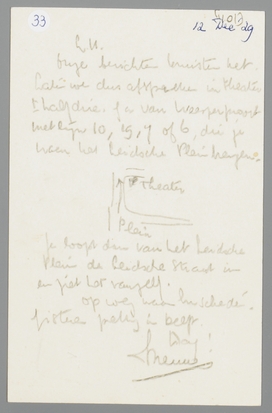 33
12 Dec 29
L. M.
onze berichten kruisten het.
Laten we dus afspreken in theater
half drie. Ga van
met lijn 10, 15, 7 of 6, die je
naar het Leidsche Plein brengen.
theater
Plein
Je loopt dan van het Leidsche
Plein de Leidsche Straat in
en ziet het vanzelf.
op weg naar Enschedé.
Gisteren prettig in
Day!